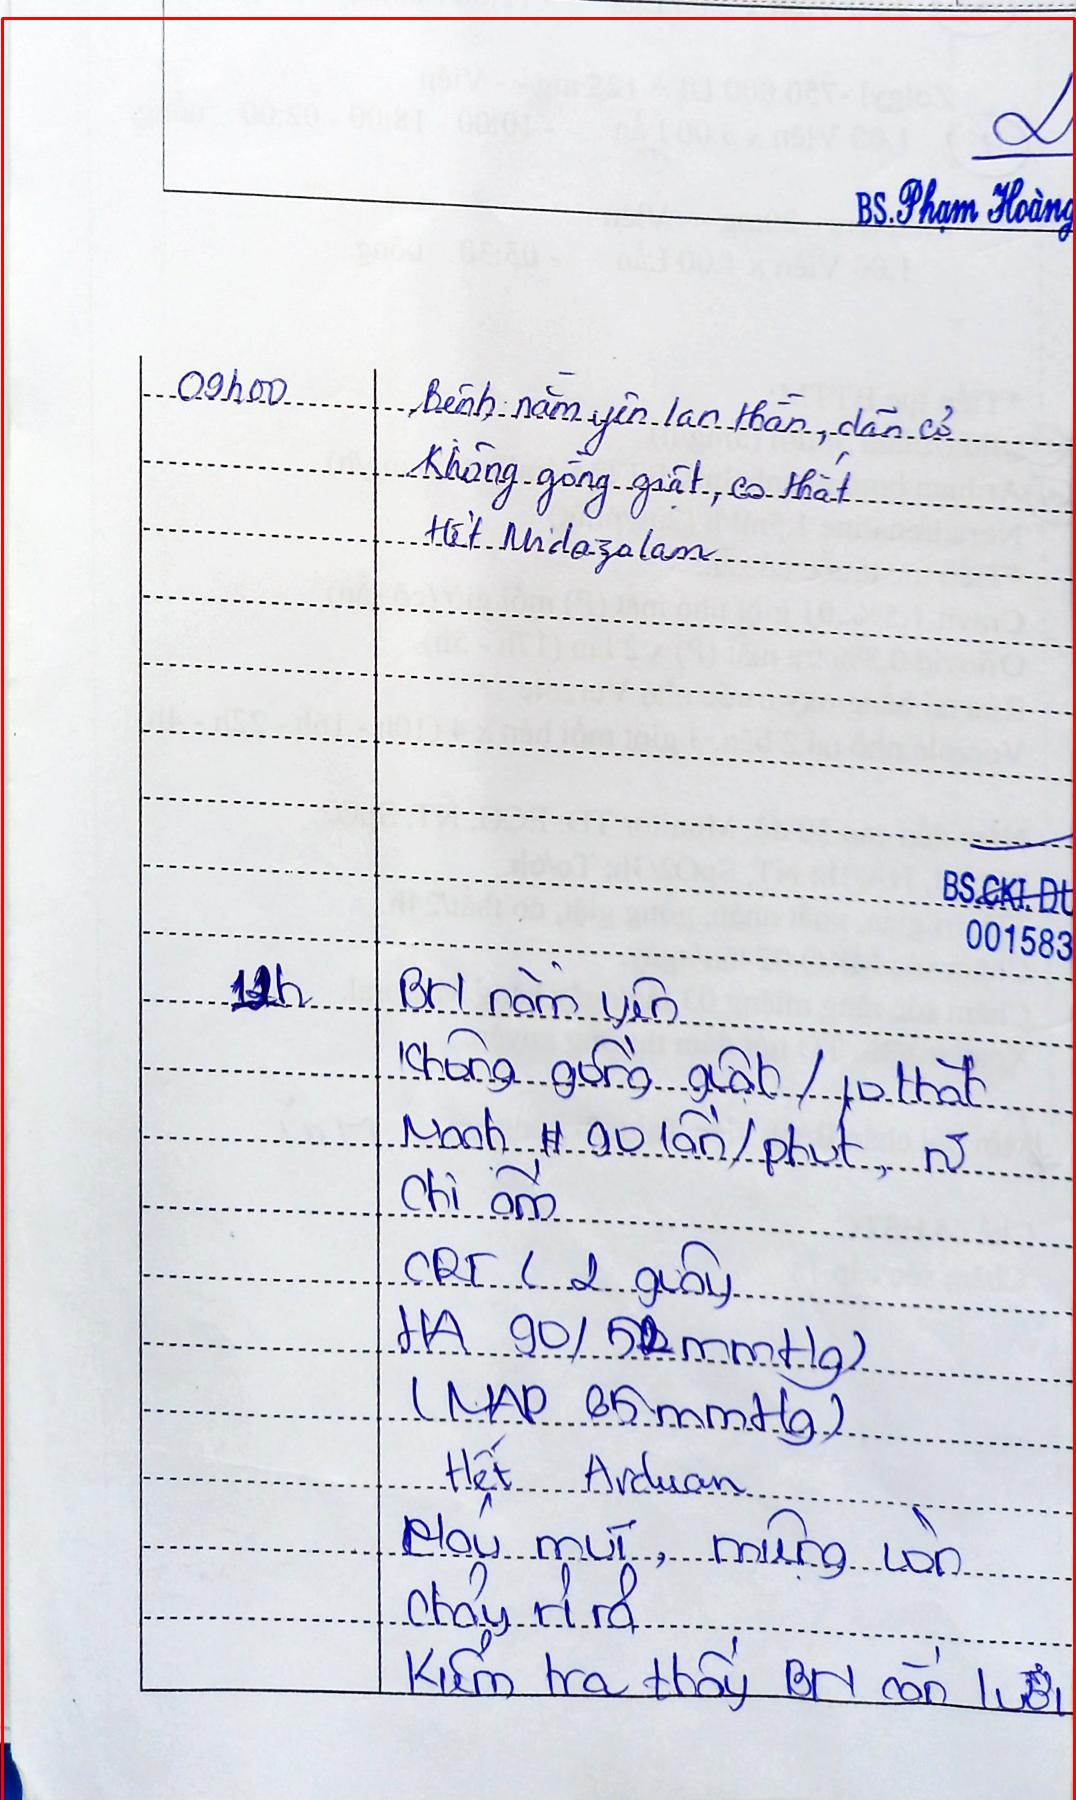 BS. Phạm Hoàng
09h00 Bệnh nằm yên lan thần, dãn cổ
Không gồng giật, co thắt
Hết Midazolam
BS.CKI. DU
001583
11h BN nằm yên
Không gồng giật / co thắt
Mạch # 90 lần/phút, rõ
Chi ấm
CRT < 2 giây
HA 90/52 mmHg
(MAP 65 mmHg)
Hết Arduan
Máu mũi, miệng còn
chảy rỉ rả
Kiểm tra thấy BN cắn lưỡi